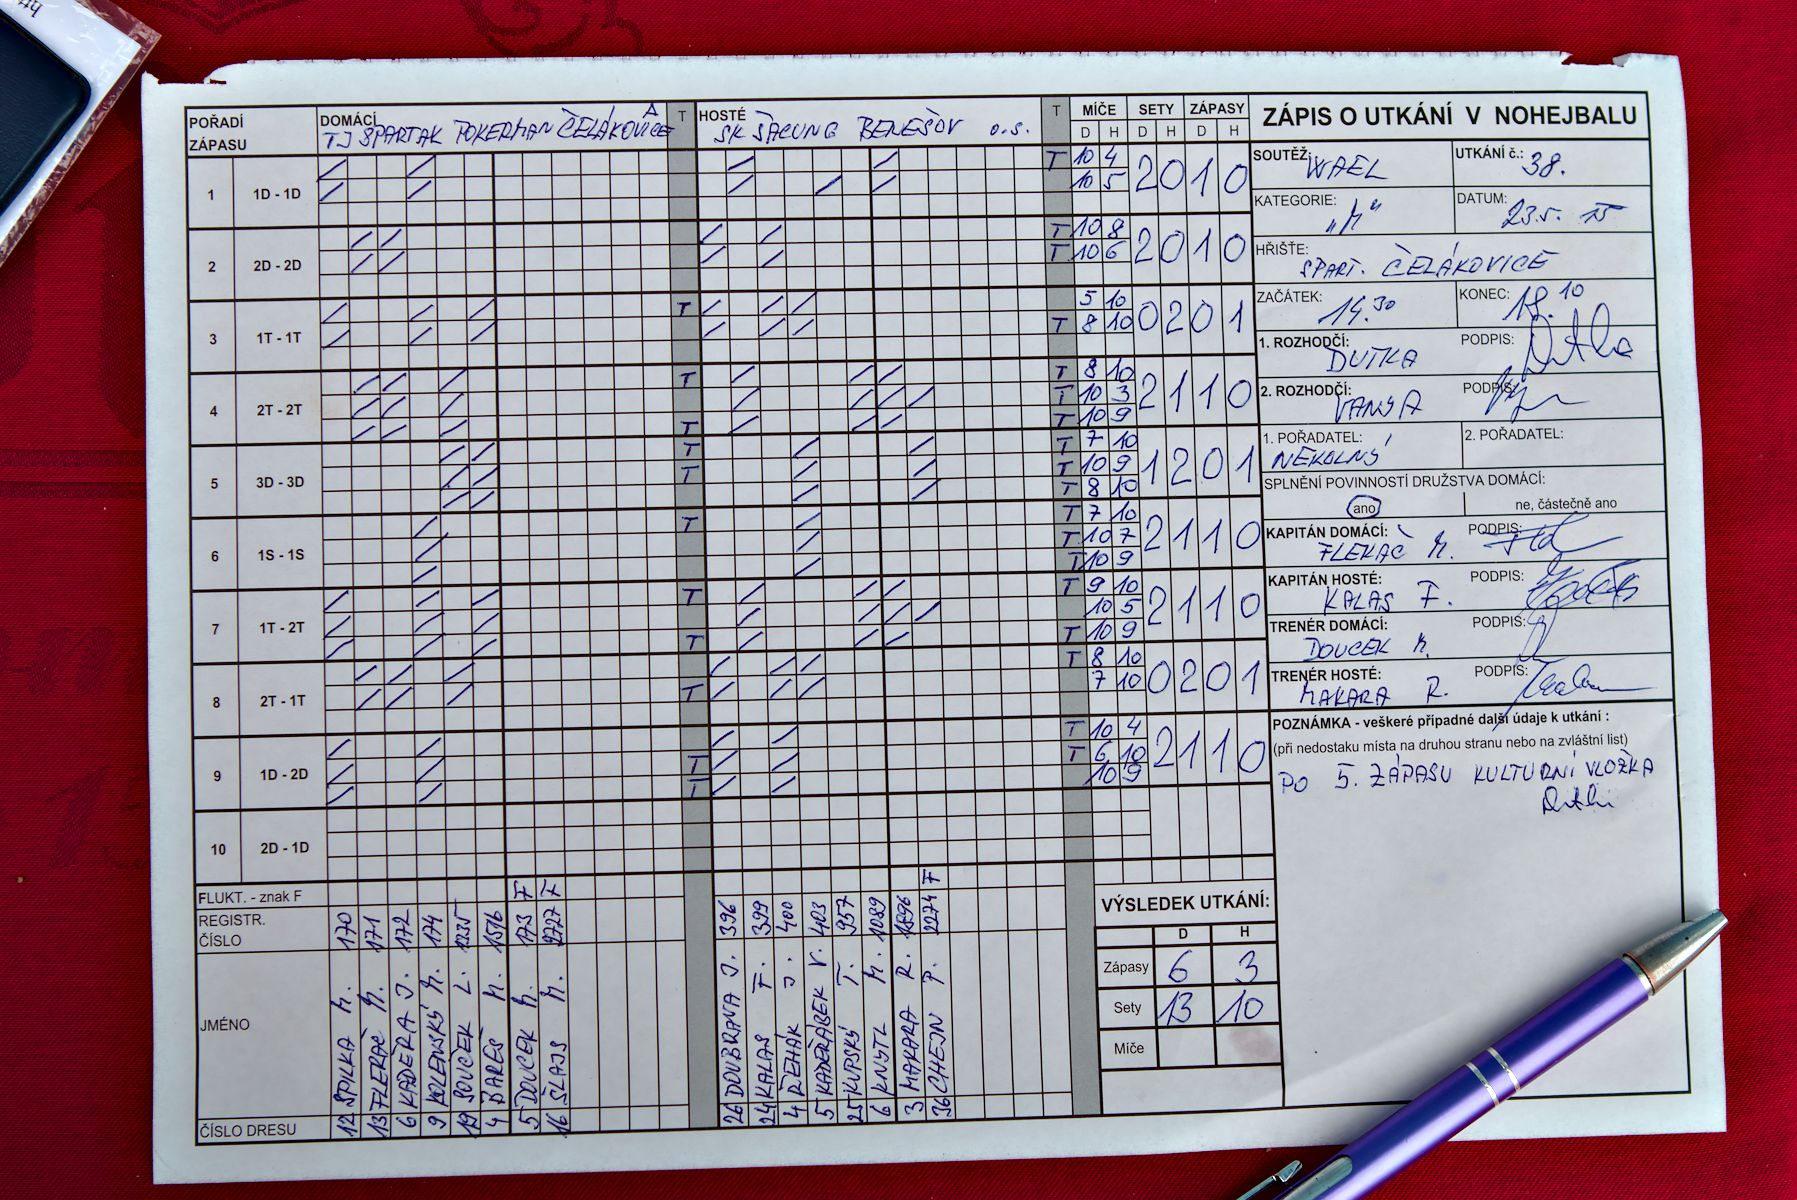 POŘADÍ ZÁPASU
DOMÁCÍ
TJ SPARTAK POKERMAN ČELÁKOVICE A
T
HOSTÉ
SK ŠACUNG BENEŠOV o.s.
T
MÍČE SETY ZÁPASY
D H D H D H
ZÁPIS O UTKÁNÍ V NOHEJBALU
1 1D - 1D T 10 4 2 0 1 0
10 5
2 2D - 2D T 10 8 2 0 1 0
T 10 6
3 1T - 1T T 5 10 0 2 0 1
T 8 10
4 2T - 2T T T 8 10 2 1 1 0
T 10 3
T T 10 9
5 3D - 3D T T 7 10 1 2 0 1
T T 10 9
T 8 10
6 1S - 1S T T 7 10 2 1 1 0
T 10 7
T 10 9
7 1T - 2T T T 9 10 2 1 1 0
10 5
T T 10 9
8 2T - 1T T 8 10 0 2 0 1
T 7 10
9 1D - 2D T 10 4 2 1 1 0
T T 6 10
T 10 9
10 2D - 1D
SOUTĚŽ: WAEL
UTKÁNÍ č.: 38.
KATEGORIE: „M“
DATUM: 23.5. 15
HŘIŠTE: SPART. ČELÁKOVICE
ZAČÁTEK: 14.30
KONEC: 18.10
1. ROZHODČÍ: DUTKA
PODPIS:
2. ROZHODČÍ: VANSA
PODPIS:
1. POŘADATEL: NEKOLNÝ
2. POŘADATEL:
SPLNĚNÍ POVINNOSTÍ DRUŽSTVA DOMÁCÍ:
ano
ne, částečně ano
KAPITÁN DOMÁCÍ: FLEKAČ M.
PODPIS:
KAPITÁN HOSTÉ: KALAS F.
PODPIS:
TRENÉR DOMÁCÍ: DOUCEK M.
PODPIS:
TRENÉR HOSTÉ: MAKARA R.
PODPIS:
POZNÁMKA - veškeré případné další údaje k utkání :
(při nedostaku místa na druhou stranu nebo na zvláštní list)
PO 5. ZÁPASU KULTURNÍ VLOŽKA
FLUKT. - znak F
REGISTR. ČÍSLO
JMÉNO
ČÍSLO DRESU
12 SPILKA M. 170
13 FLEKAČ M. 171
6 KADEŘA J. 172
9 KOLENSKÝ M. 174
19 SOUČEK L. 1235
4 BAREŠ M. 1516
5 DOUCEK M. 173 F
16 ŠLAJS M. 2727 F
26 DOUBRAVA J. 396
24 KALAS F. 399
4 ŘEHÁK J. 400
5 KADEŘÁBEK V. 403
25 KUPSKÝ T. 957
6 KNYTL M. 1089
3 MAKARA R. 1896
36 CHEJN P. 2274 F
VÝSLEDEK UTKÁNÍ:
D H
Zápasy 6 3
Sety 13 10
Míče